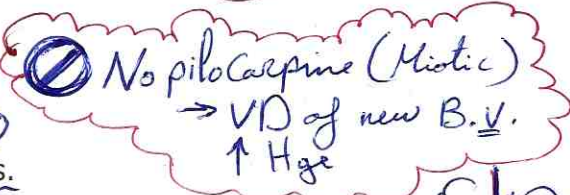 No pilocarpine (Miotic)
→ VD of new B.V.
↑ Hge
s.